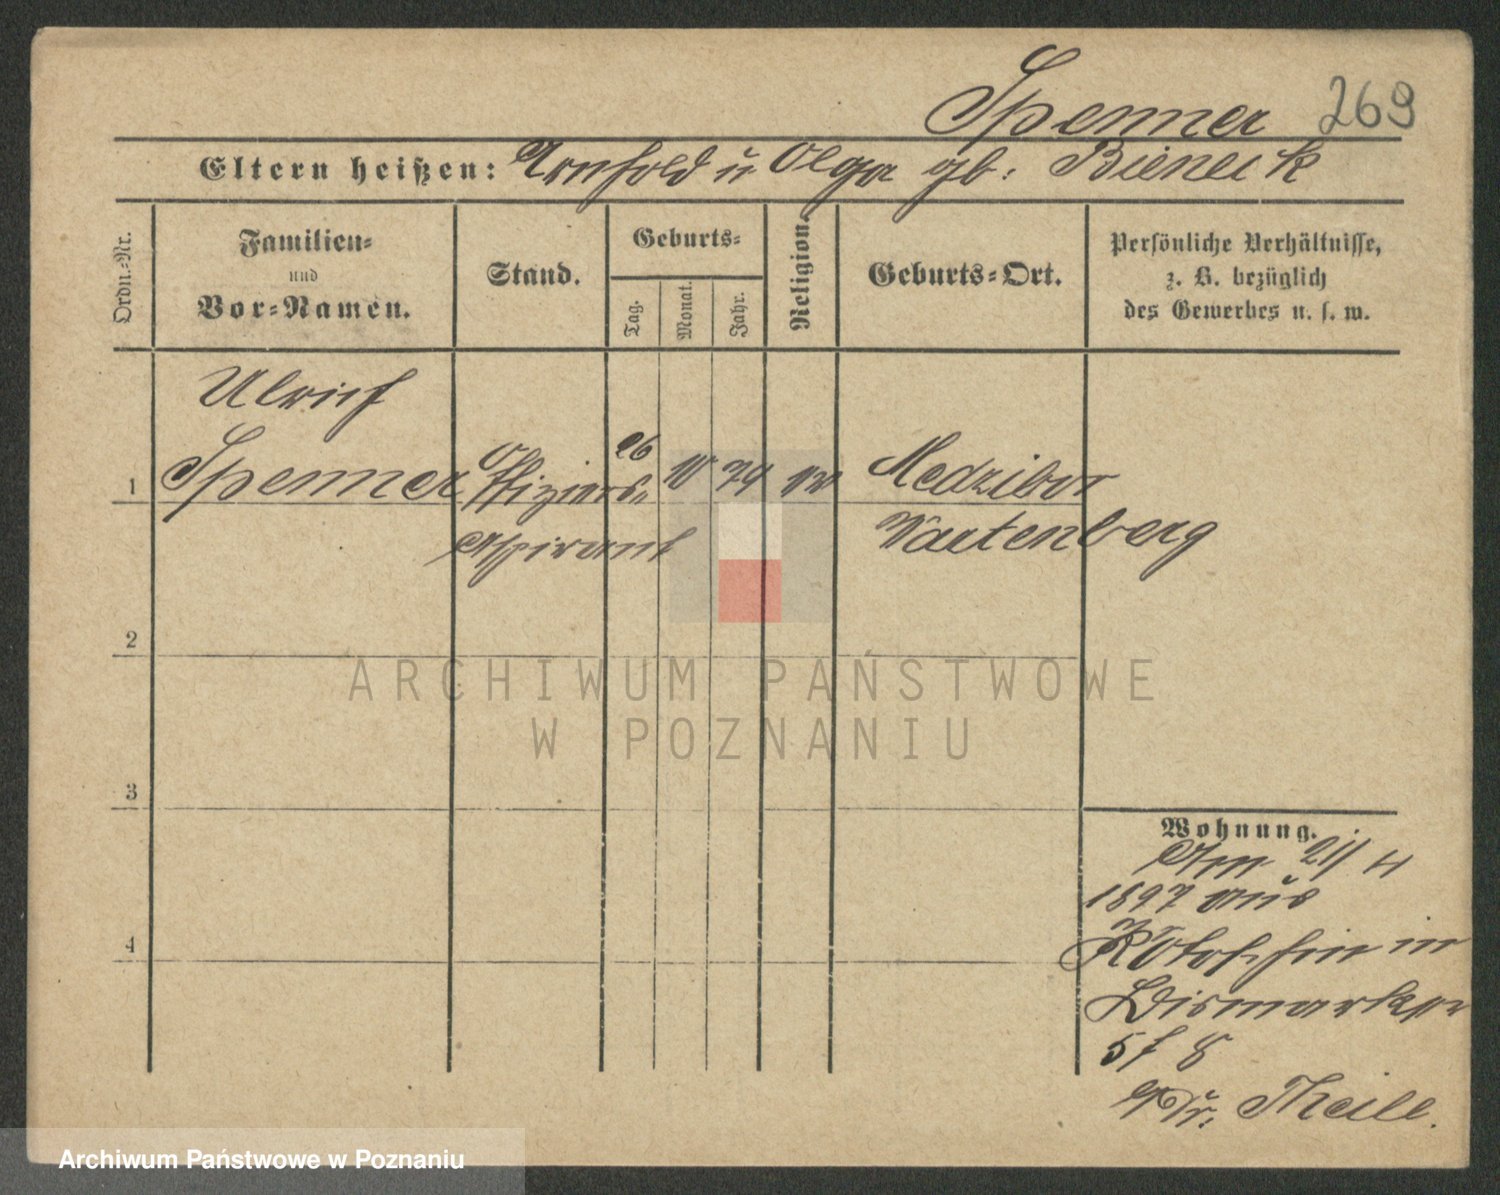 Spenner 269
Eltern heißen: Arnhold u Olga gb: Bieneck
Ordn.-Nr.
Familien-
und
Vor-Namen.
Stand.
Geburts-
Tag.
Monat.
Jahr.
Religion.
Geburts-Ort.
Persönliche Verhältnisse,
z. B. bezüglich
des Gewerbes u. s. w.
Ulrich
1 Spenner Offiziers- 26 10 79 ev Medzibor
Aspirant Wartenberg
2
3
4
Wohnung.
Am 21/4
1897 aus
Krotoschin in
Bismarckstr
5 f 8
Theile.
ARCHIWUM PAŃSTWOWE
W POZNANIU
Archiwum Państwowe w Poznaniu